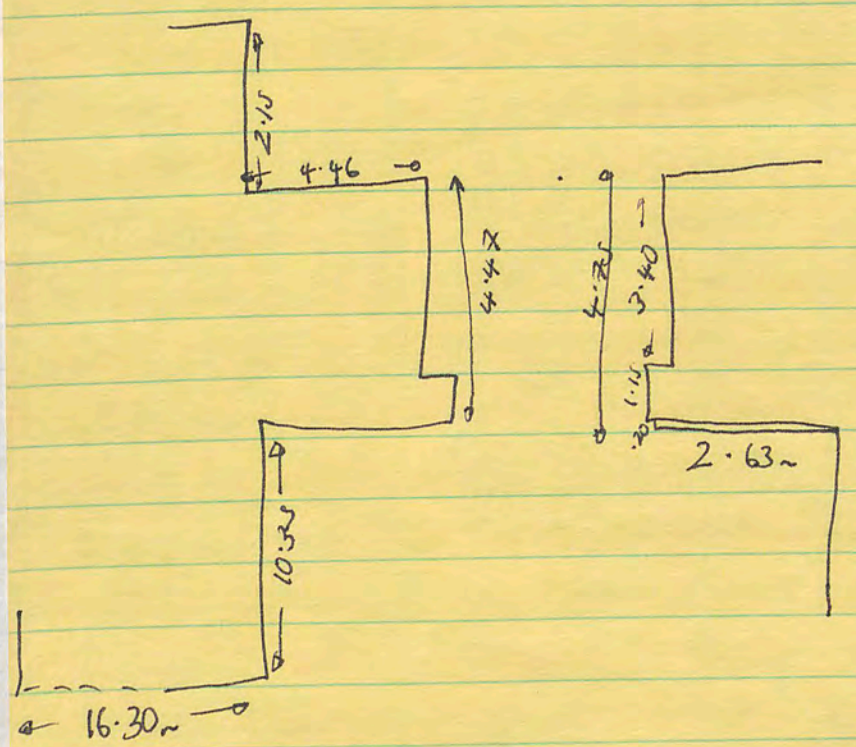 2.15
4.46
4.47
4.75
3.40
1.15
.20
2.63m
10.35
16.30m